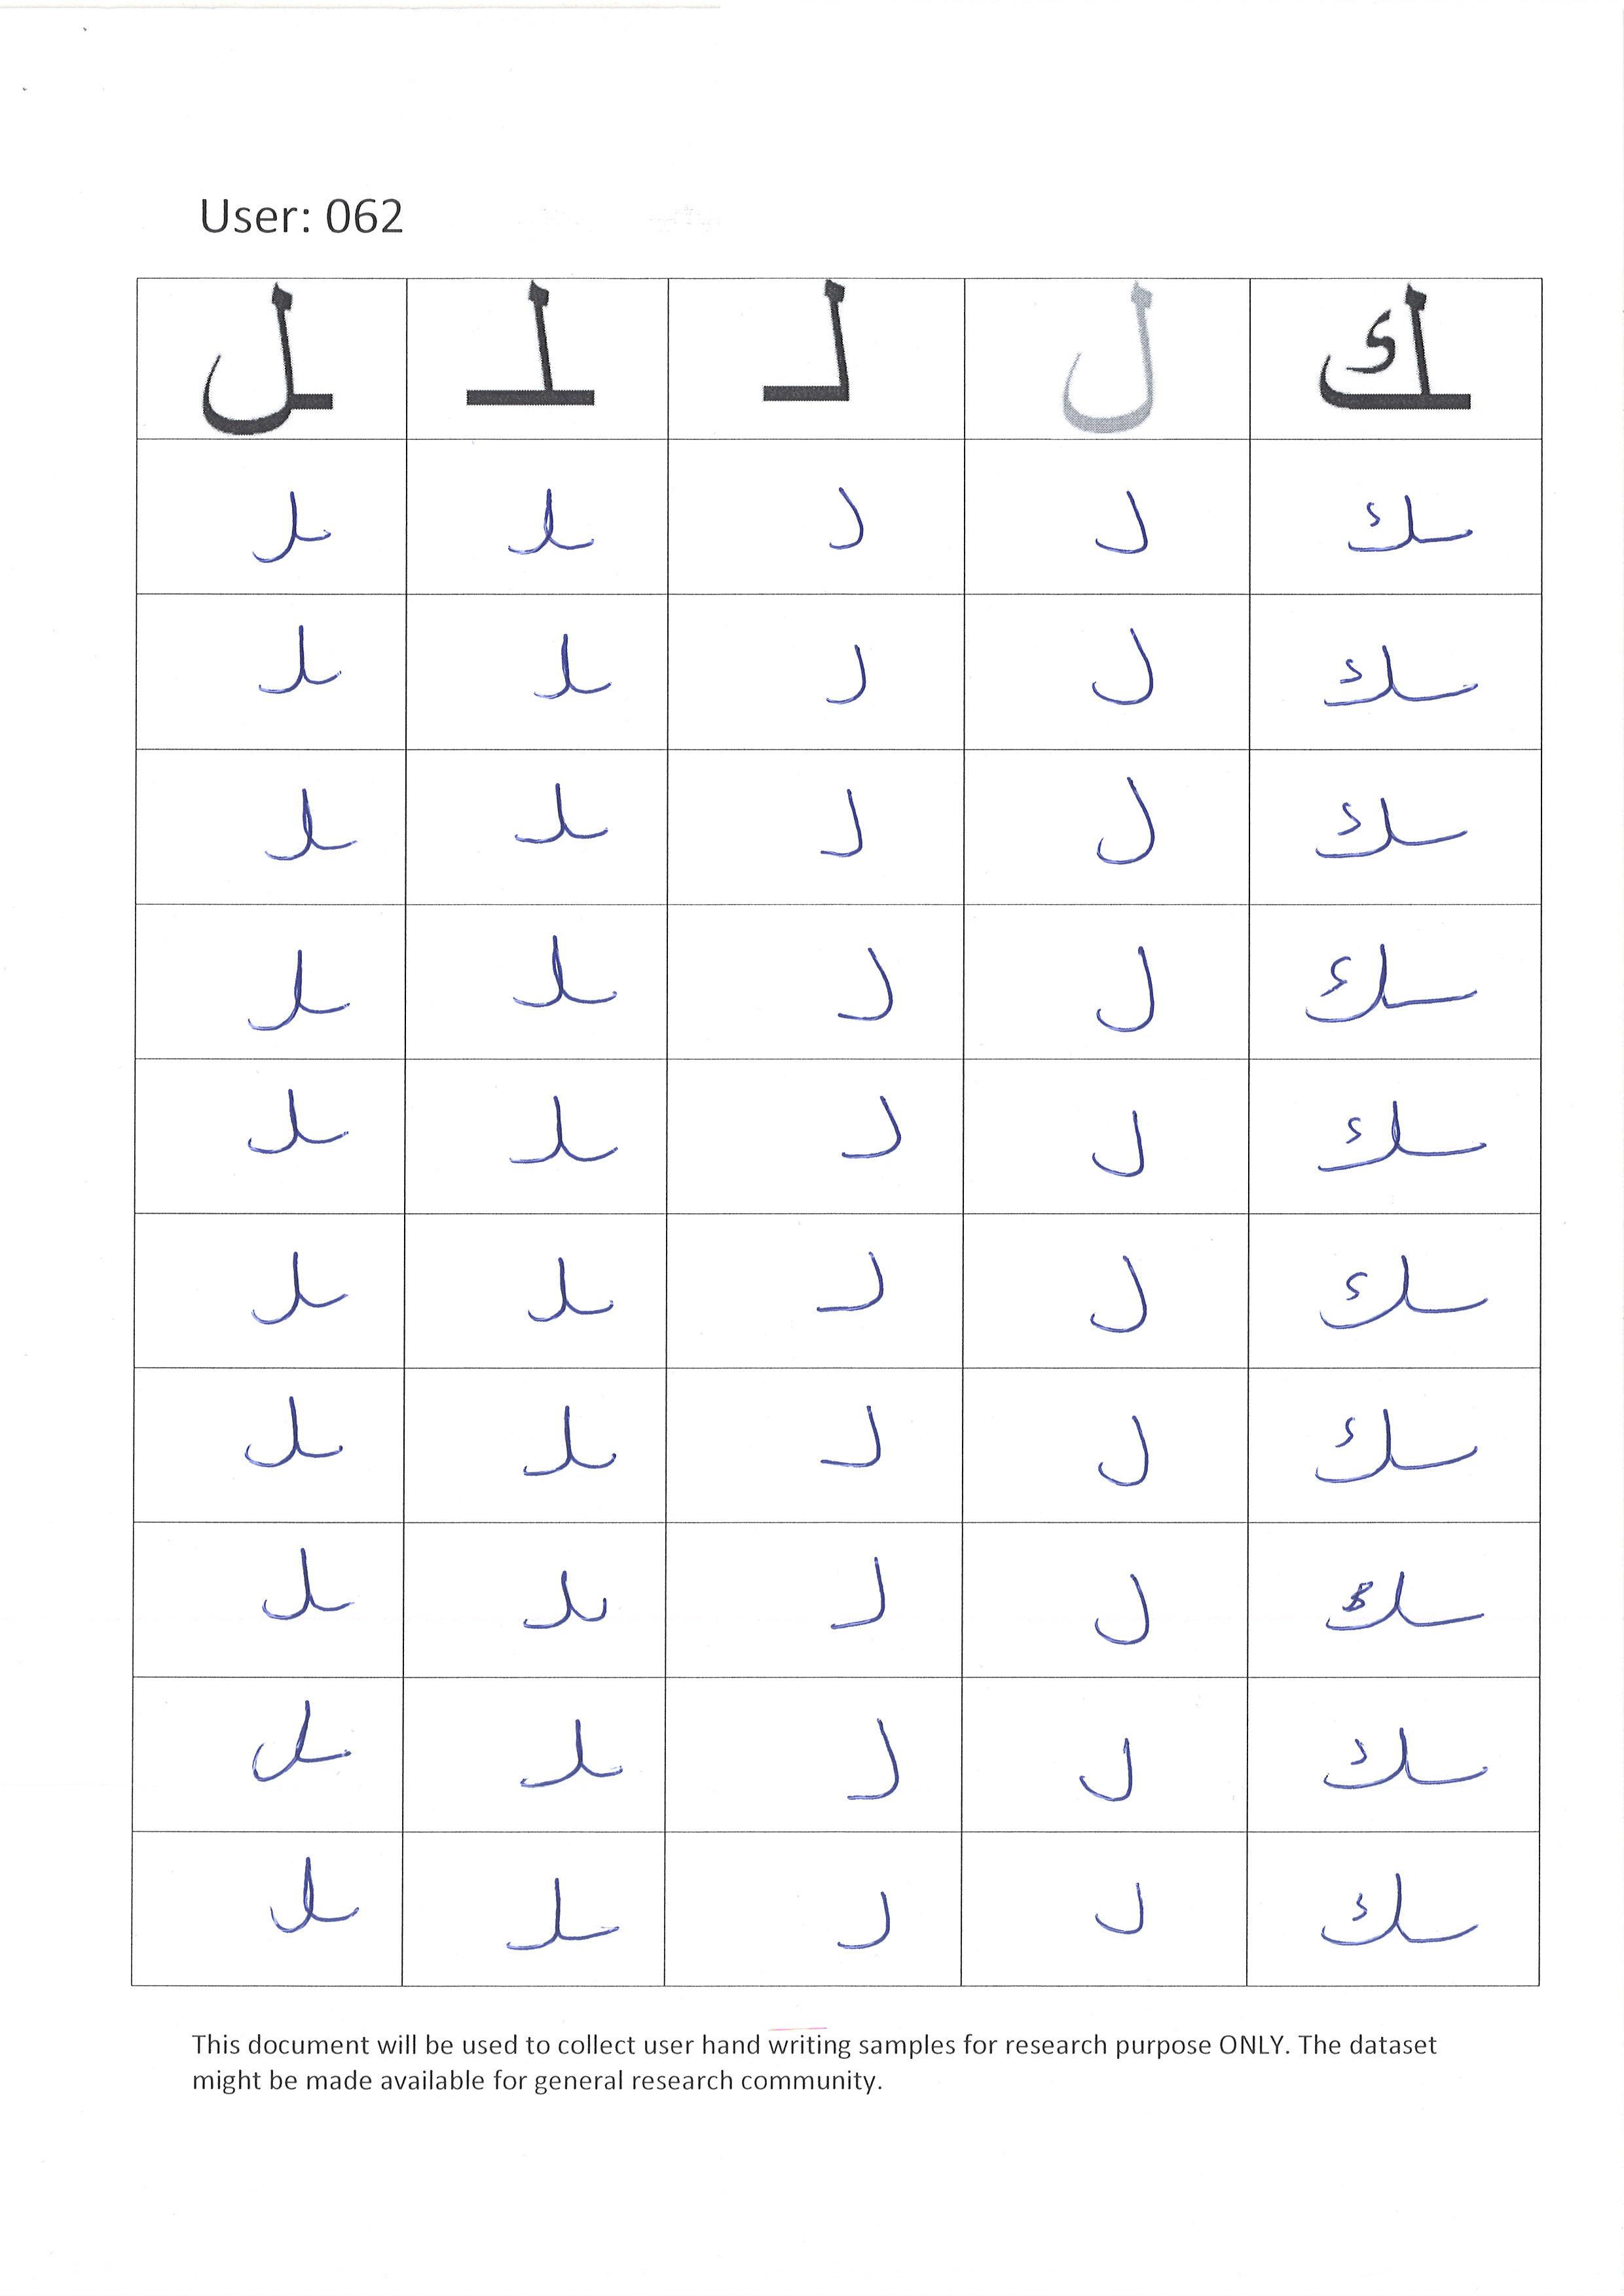 User: 062
ك ل لـ ـلـ ـل
ـك ل لـ ـلـ ـل
ـك ل لـ ـلـ ـل
ـك ل لـ ـلـ ـل
ـك ل لـ ـلـ ـل
ـك ل لـ ـلـ ـل
ـك ل لـ ـلـ ـل
ـك ل لـ ـلـ ـل
ـك ل لـ ـلـ ـل
ـك ل لـ ـلـ ـل
ـك ل لـ ـلـ ـل
This document will be used to collect user hand writing samples for research purpose ONLY. The dataset
might be made available for general research community.